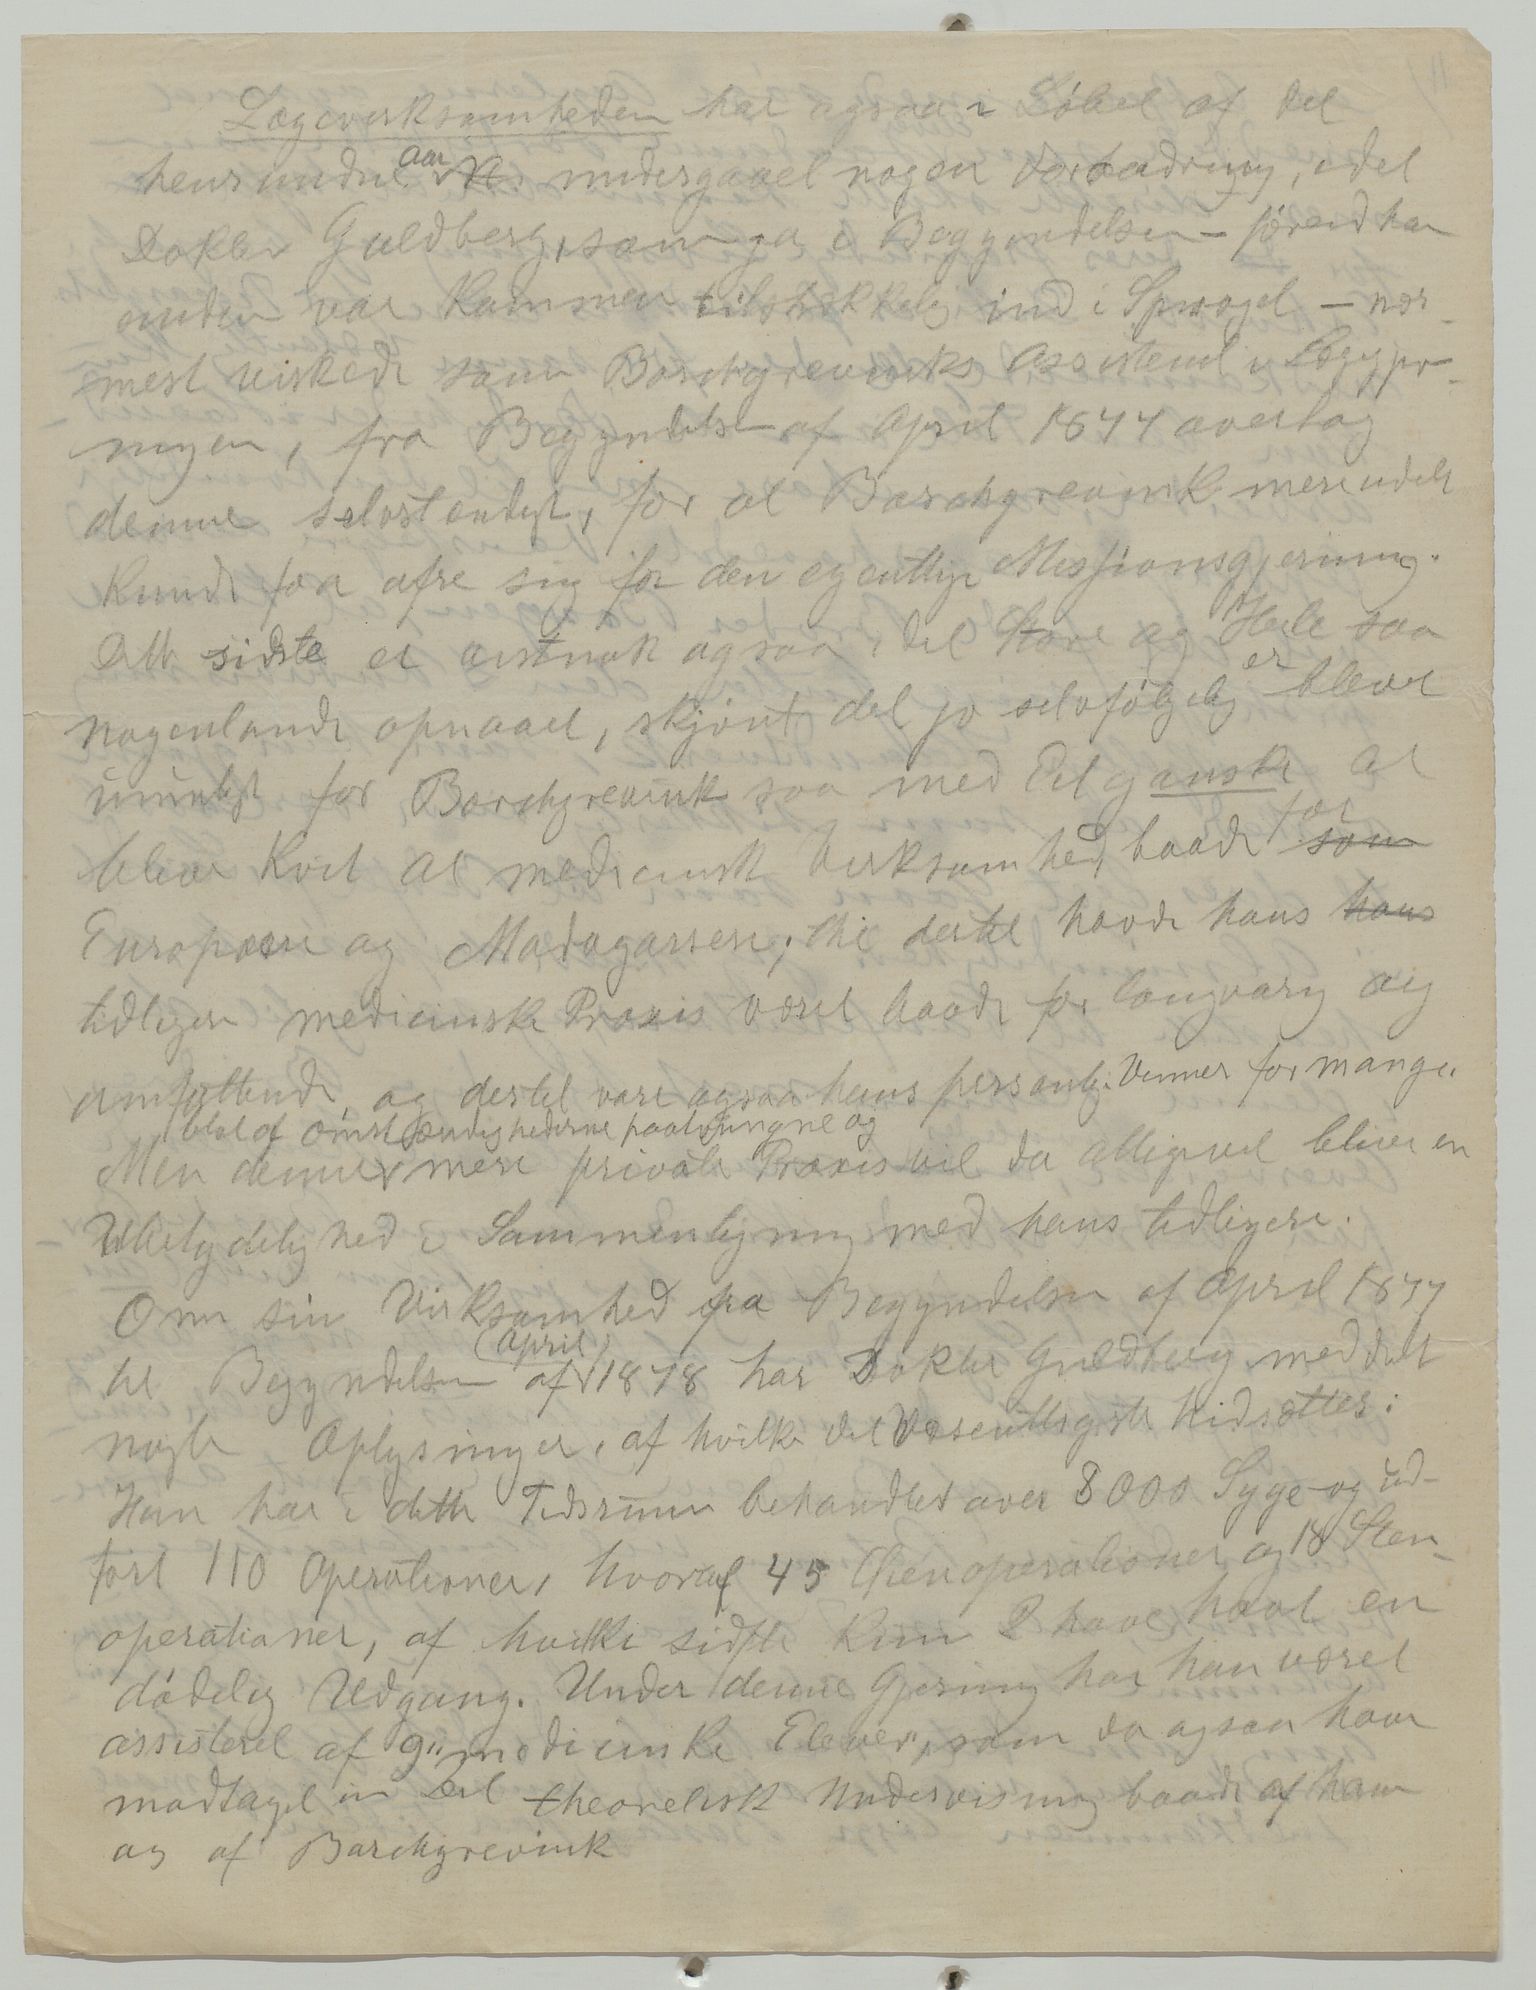 Lægevirksomheden har ogsaa i Løbet af det
henrundne Aar undergaaet nogen Forandring, idet
Doktor Guldberg, som ja i Begyndelsen – førend han
endnu var kommen tilstrækkelig ind i Sproget – nær-
mest virkede som Borchgrevinks Assistent i Lægegjer-
ningen, fra Begyndelsen af April 1877 overtog
denne selvstændigt, for at Borchgrevink mere udelt
kunde faa ofre sig for den egentlige Missionsgjerning.
Dette sidste er vistnok ogsaa i det Store og Hele saa
nogenlunde opnaaet, skjønt det jo selvfølgelig er blevet
umuligt for Borchgrevink saa med Et ganske at
blive kvit al medicinsk Virksomhed baade for som
Europæere og Madagassere; thi dertil havde hans hans
tidligere medicinske Praxis været baade for langvarig og
omfattende, og dertil vare ogsaa hans personlige Venner for mange.
Men denne blot af Omstændighederne paatvungne og mere private Praxis vil da alligevel blive en
Ubetydelighed i Sammenligning med hans tidligere.
Om sin Virksomhed fra Begyndelsen af April 1877
til Begyndelsen af (April) 1878 har Doktor Guldberg meddelt
nogle Oplysninger, af hvilke det Væsentligste hidsættes:
Han har i dette Tidsrum behandlet over 8000 Syge og ud-
ført 110 Operationer, hvoraf 45 Øienoperationer og 18 Sten-
operationer, af hvilke sidste kun 2 have havt en
dødelig Udgang. Under denne Gjerning har han været
assisteret af 9 "medicinske Elever", som da ogsaa have
modtaget en Del theoretisk Undervisning baade af ham
og af Borchgrevink